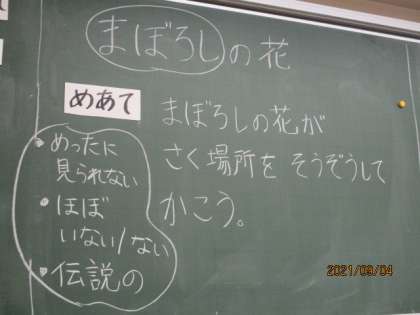 まぼろしの花
めあて
まぼろしの花が
さく場所をそうぞうして
かこう。
・めったに
見られない
・ほぼ
いない/ない
・伝説の
2021/09/04